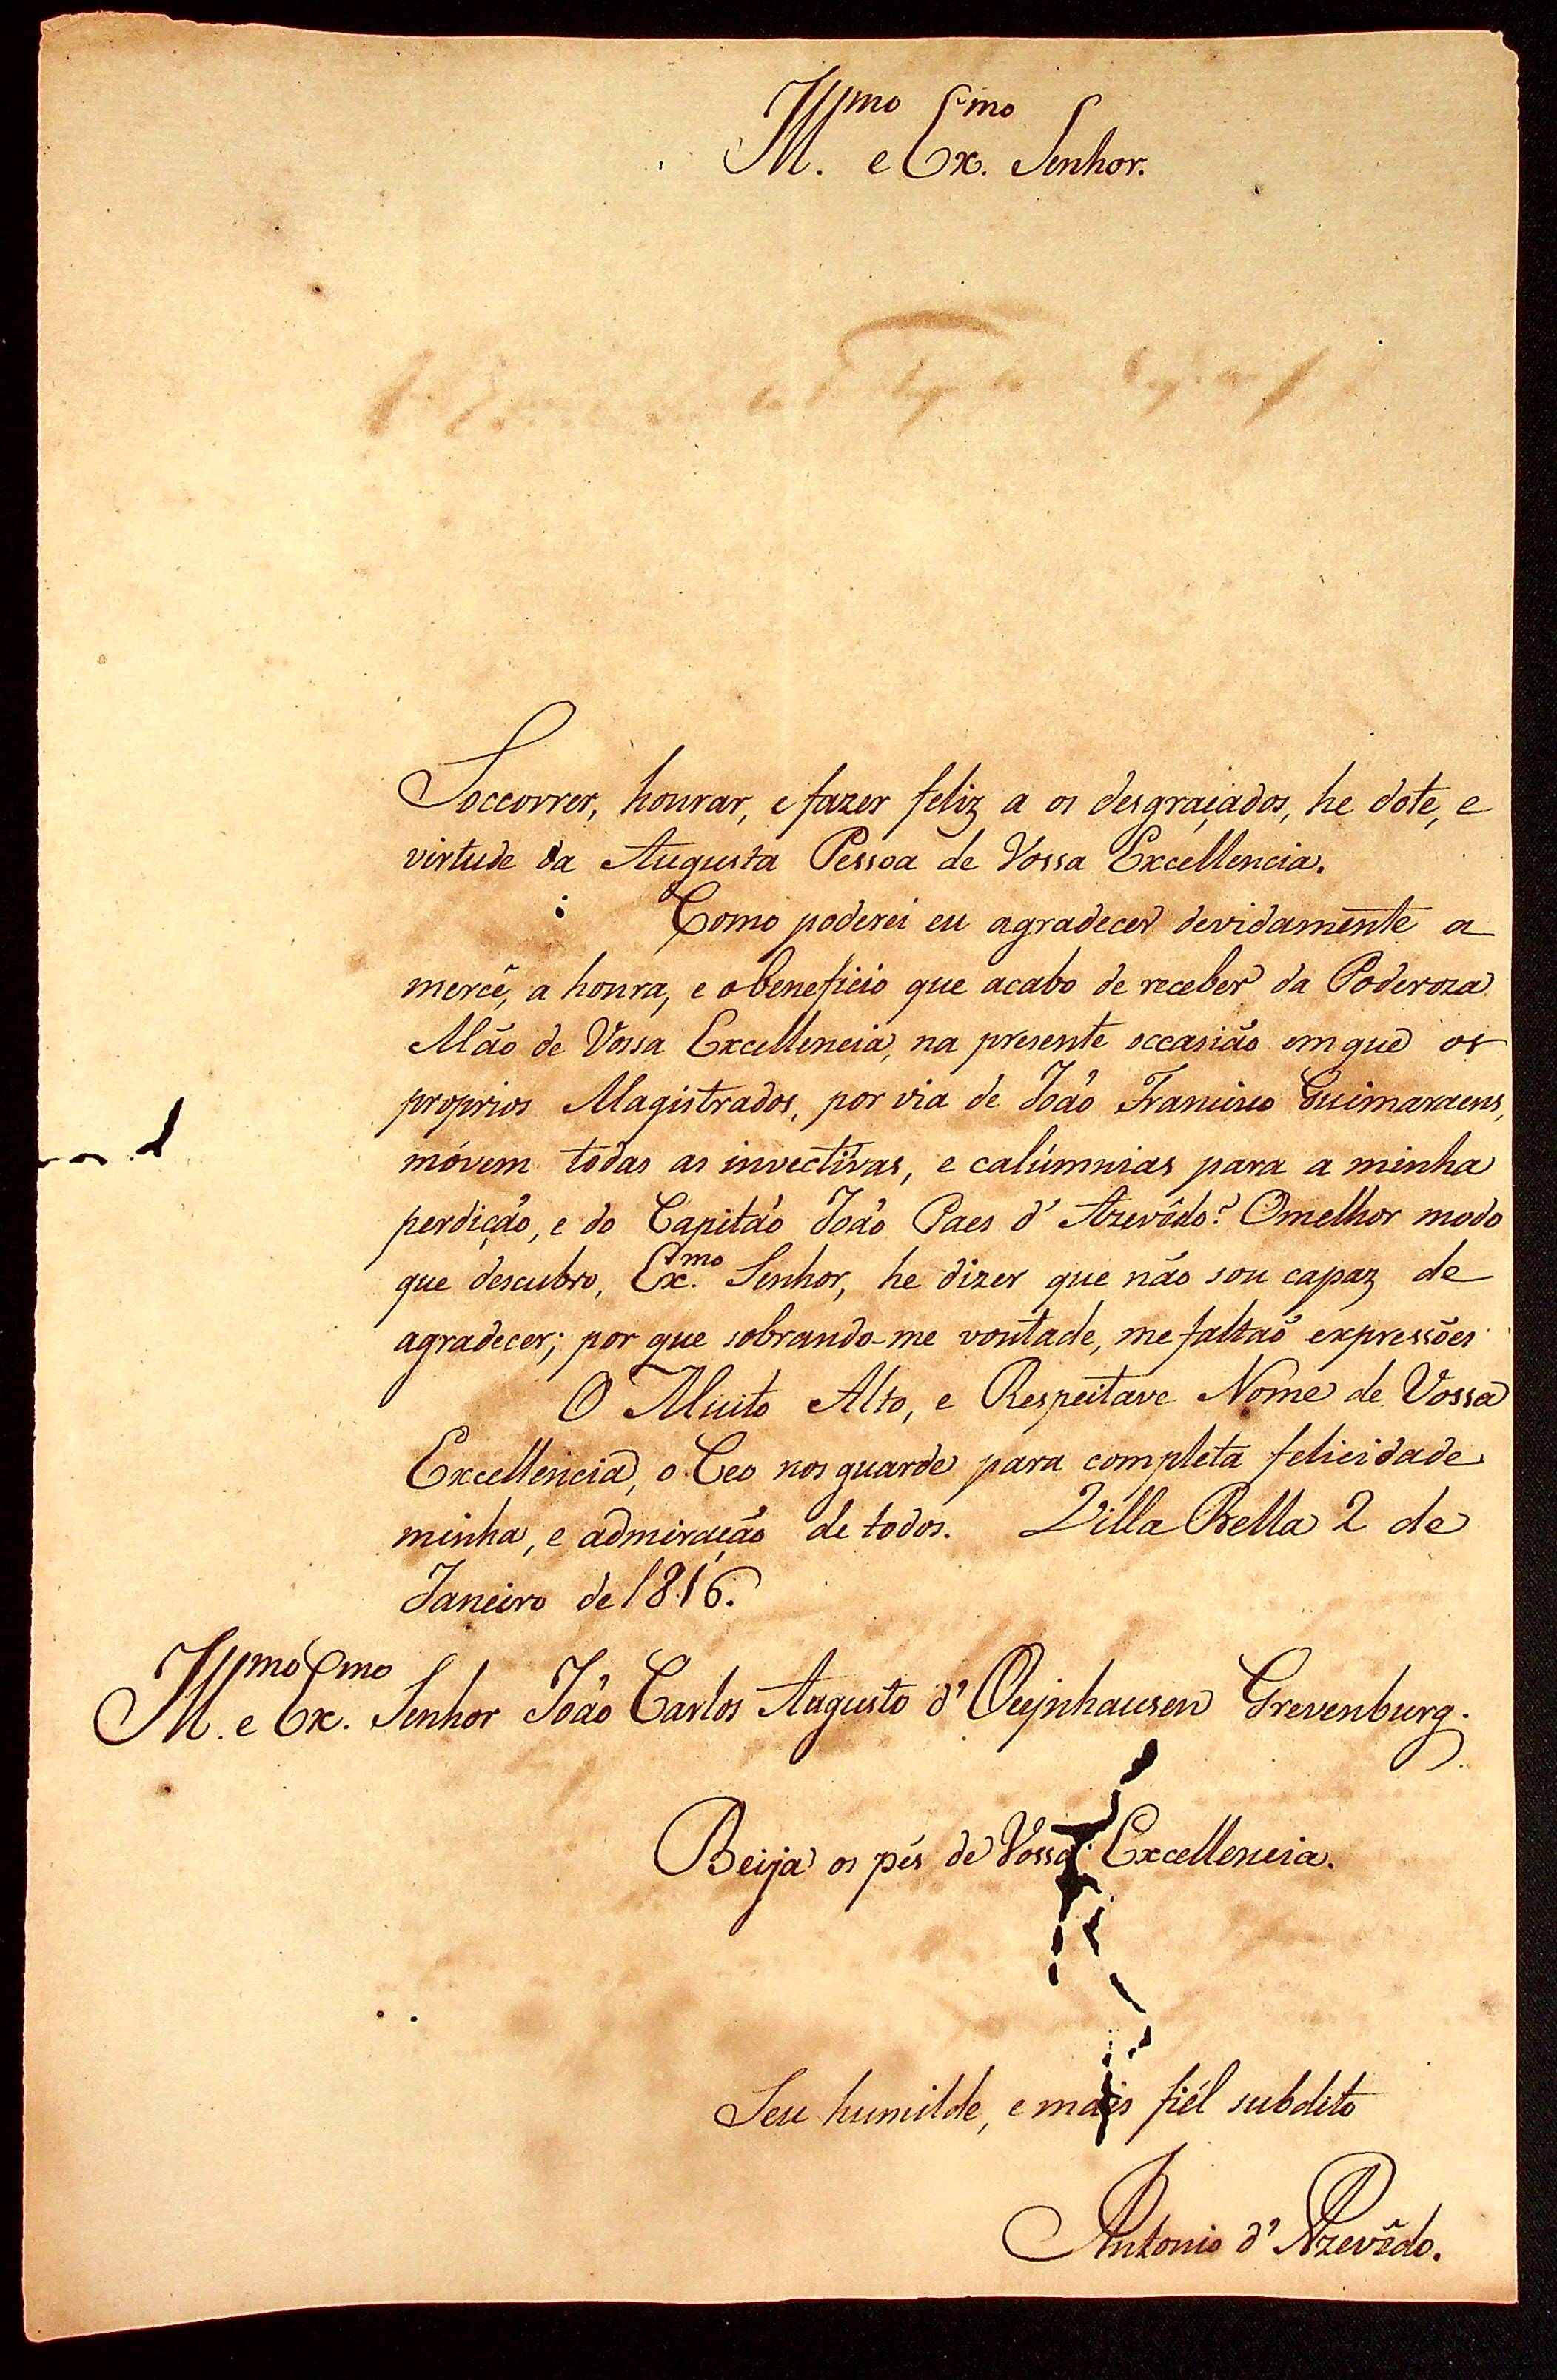 Ill.mo e Ex.mo Senhor.
Soccorrer, honrar, e fazer feliz a os desgraçados, he dote, e
virtude da Augusta Pessoa de Vossa Excellencia.
Como poderei eu agradecer devidamente a
mercê, a honra, e o beneficio que acabo de receber da Poderoza
Mão de Vossa Excellencia, na presente occasião em que os
proprios Magistrados, por via de João Francisco Guimaraens,
móvem todas as invectivas, e calúmnias para a minha
perdição, e do Capitão João Paes d' Azevêdo? O melhor modo
que descubro, Ex.mo Senhor, he dizer que não sou capaz de
agradecer; por que sobrando-me vontade, me faltaõ expressões
O Muito Alto, e Respeitave Nome de Vossa
Excellencia, o Ceo nos guarde para completa felicidade
minha, e admiração de todos. Villa Bella 2 de
Janeiro de 1816.
Ill.mo e Ex.mo Senhor João Carlos Augusto d' Oeynhausen Grevenburg.
Beija os pés de Vossa Excellencia.
Seu humilde, e mais fiél subdito
Antonio d' Azevêdo.